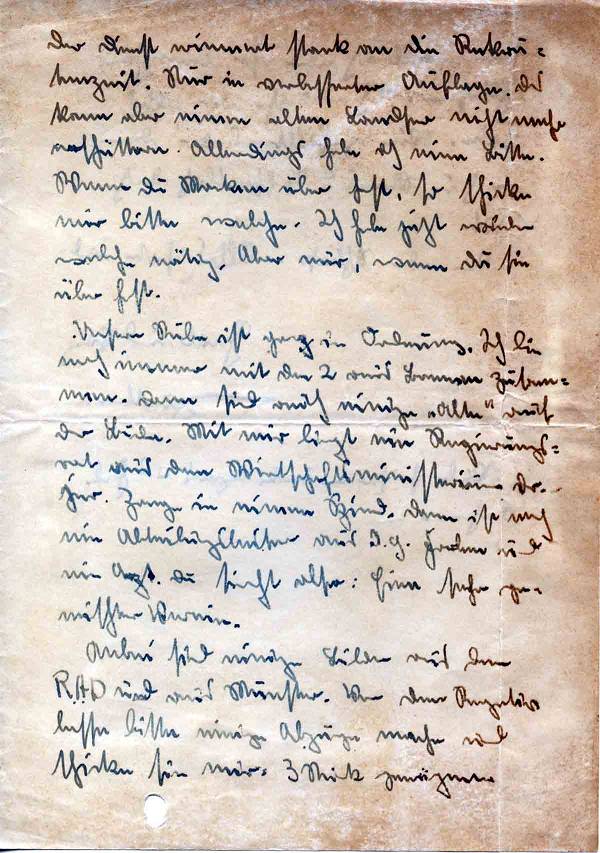 Der Dienst erinnert stark an die Rekru-
tenzeit. Nur in verbesserter Auflage. Das
kann aber einen alten Landser nicht mehr
erschüttern. Allerdings habe ich eine Bitte.
Wenn Du Marken über hast, so schicke
mir bitte welche. Ich habe jetzt wieder
welche nötig. Aber nur, wenn Du sie
über hast.
Unsere Stube ist ganz in Ordnung. Ich bin
noch immer mit den 2 aus Bremen zusam-
men. Dann sind auch einige „Alte" auf
der Bude. Mit mir liegt ein Regierungs-
rat aus dem Wirtschaftsministerium Dr.
jur. Zange in einem Spind. Dann ist noch
ein Abteilungsleiter aus I.G. Farben und
ein Arzt. Du siehst also: Eine sehr ge-
mischter Verein.
Anbei sind einige Bilder aus dem
R.A.D und aus Münster. Von dem
lasse bitte einige Abzüge machen und
schicke sie mir. 3 Stück genügen